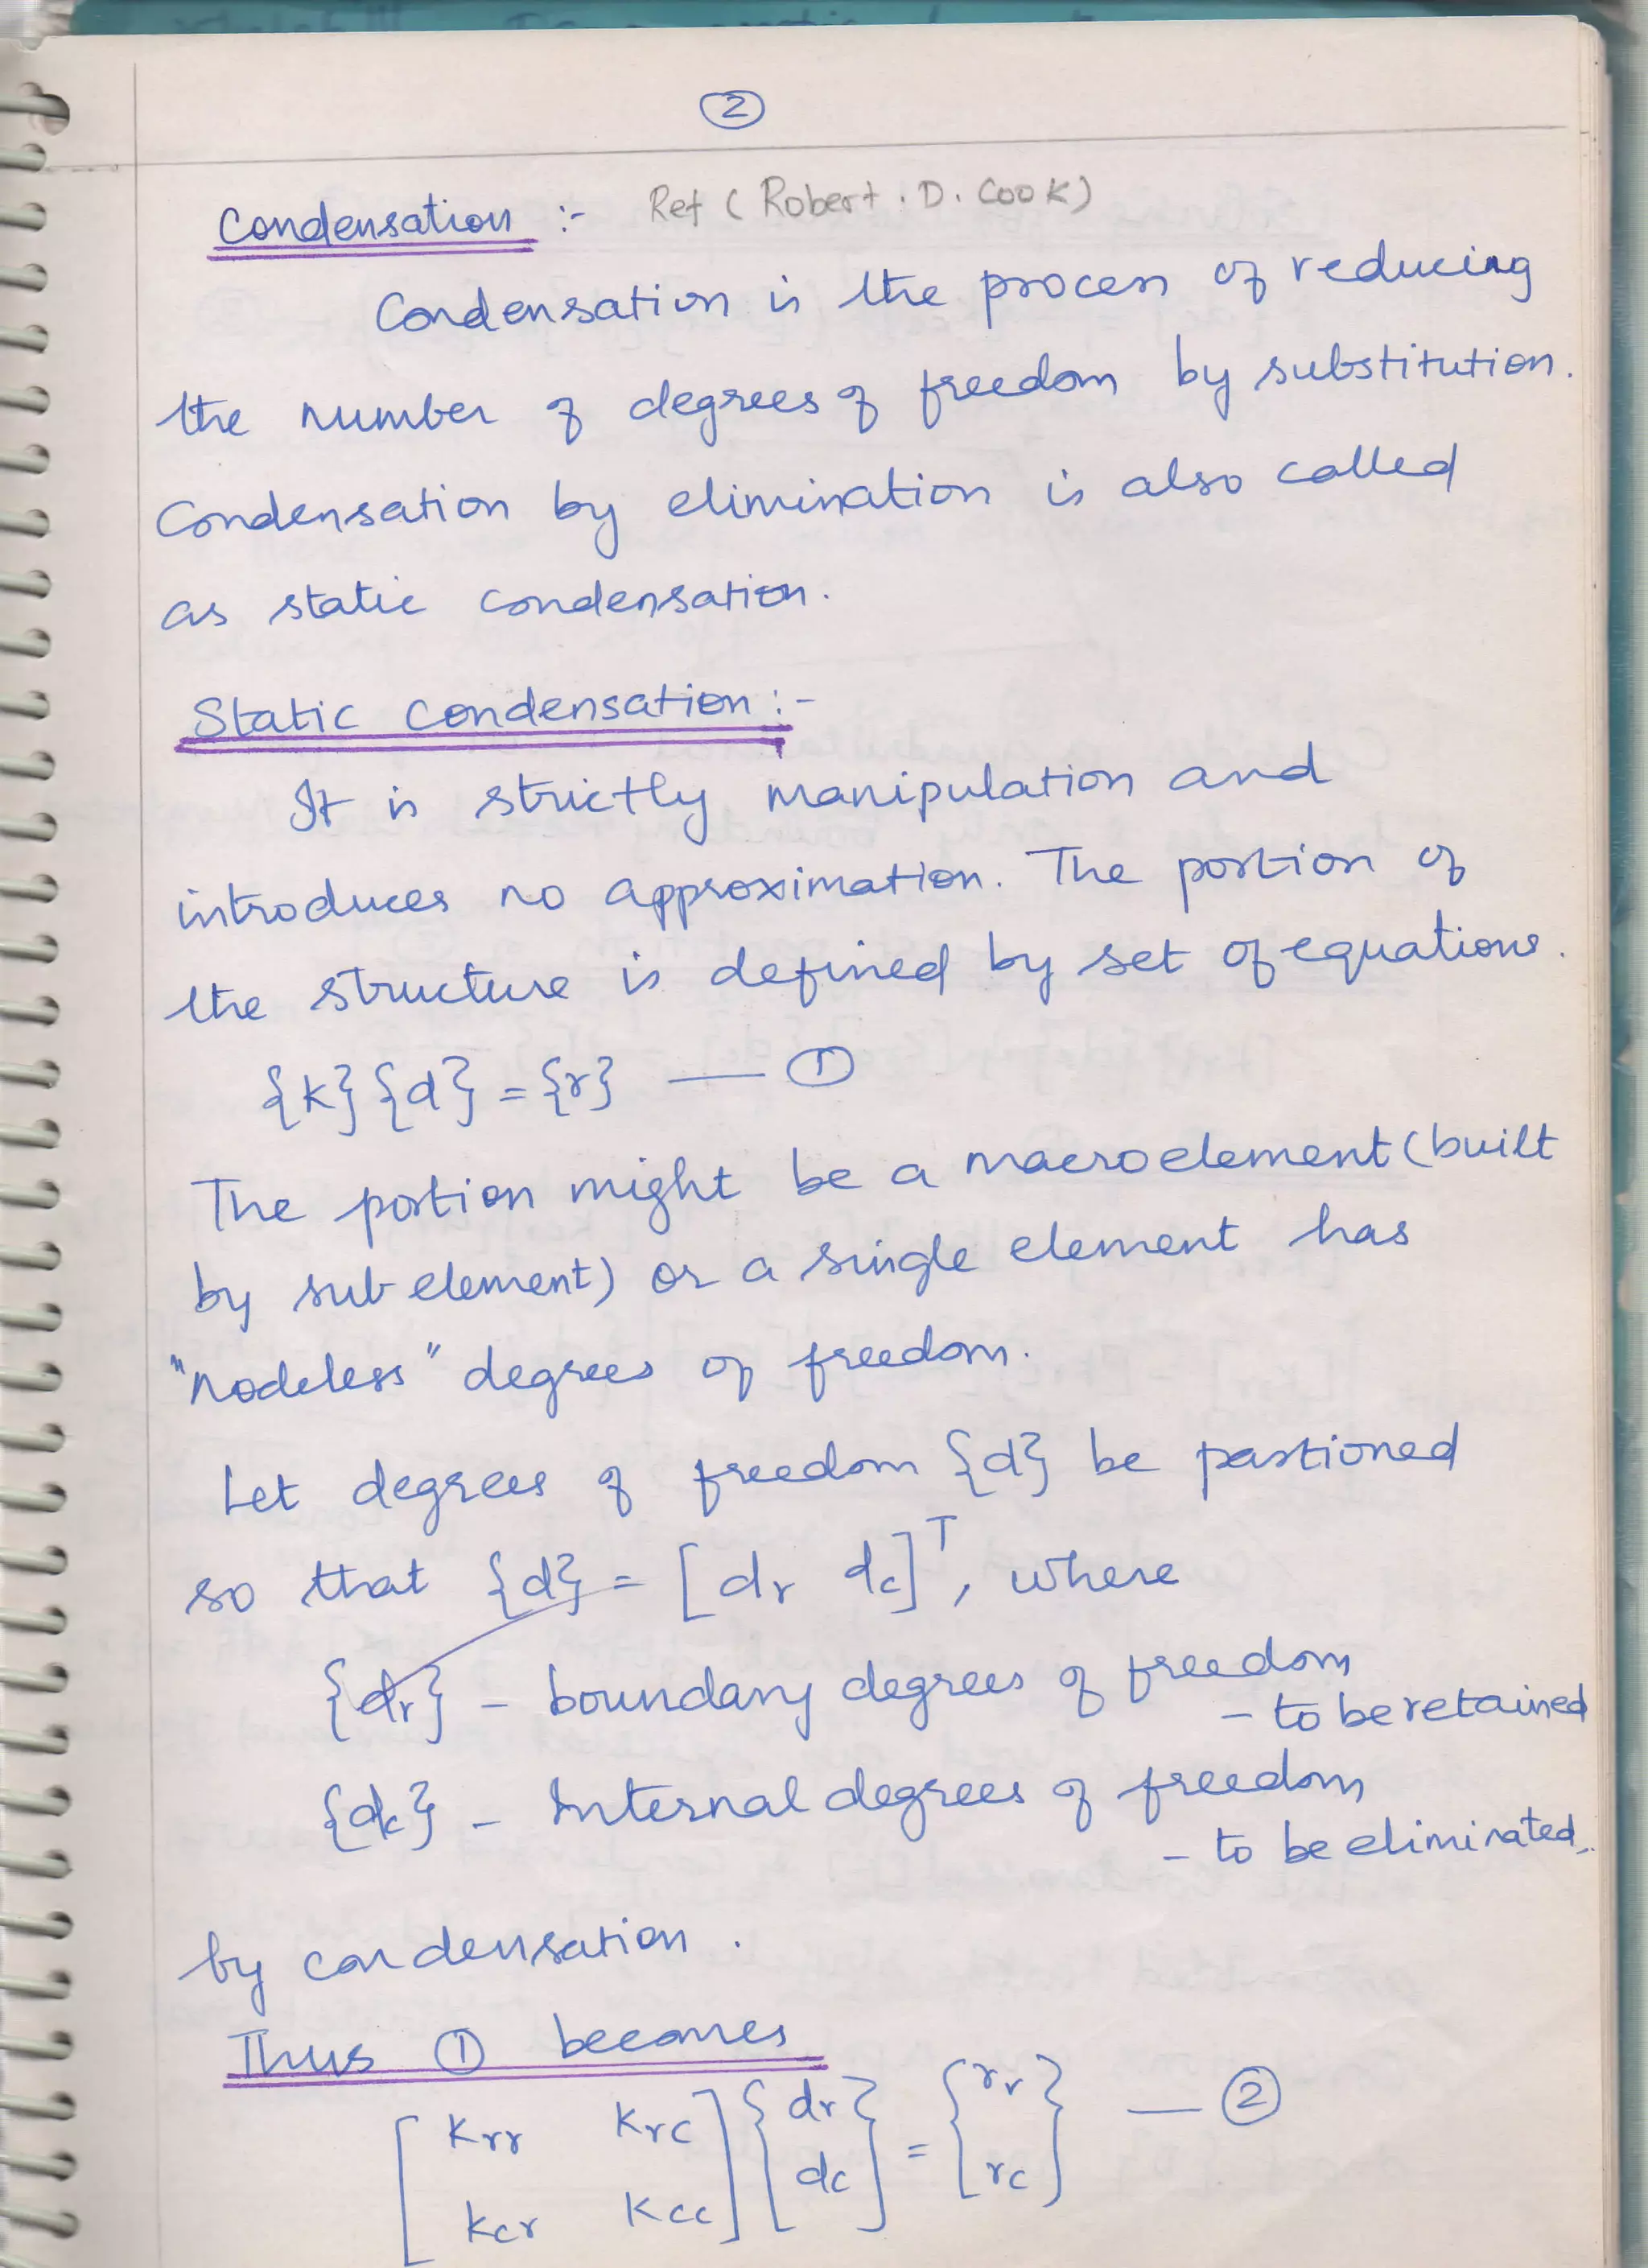 ②
Condensation :- Ref ( Robert . D. Cook)
Condensation is the process of reducing
the number of degrees of freedom by substitution.
Condensation by elimination is also called
as static condensation.
Static Condensation :-
It is strictly manipulation and
introduces no approximation. The portion of
the structure is defined by set of equations.
{k} {d} = {r} — ①
The portion might be a macroelement (built
by sub element) or a single element has
"nodeless" degrees of freedom.
Let degrees of freedom {d} be partioned
so that {d} = [dr dc]ᵀ, where
{dr} - boundary degrees of freedom
- to be retained
{dc} - Internal degrees of freedom
- to be eliminated.
by condensation.
Thus ① becomes
[krr krc] {dr} = {rr} — ②
[kcr kcc] {dc} {rc}